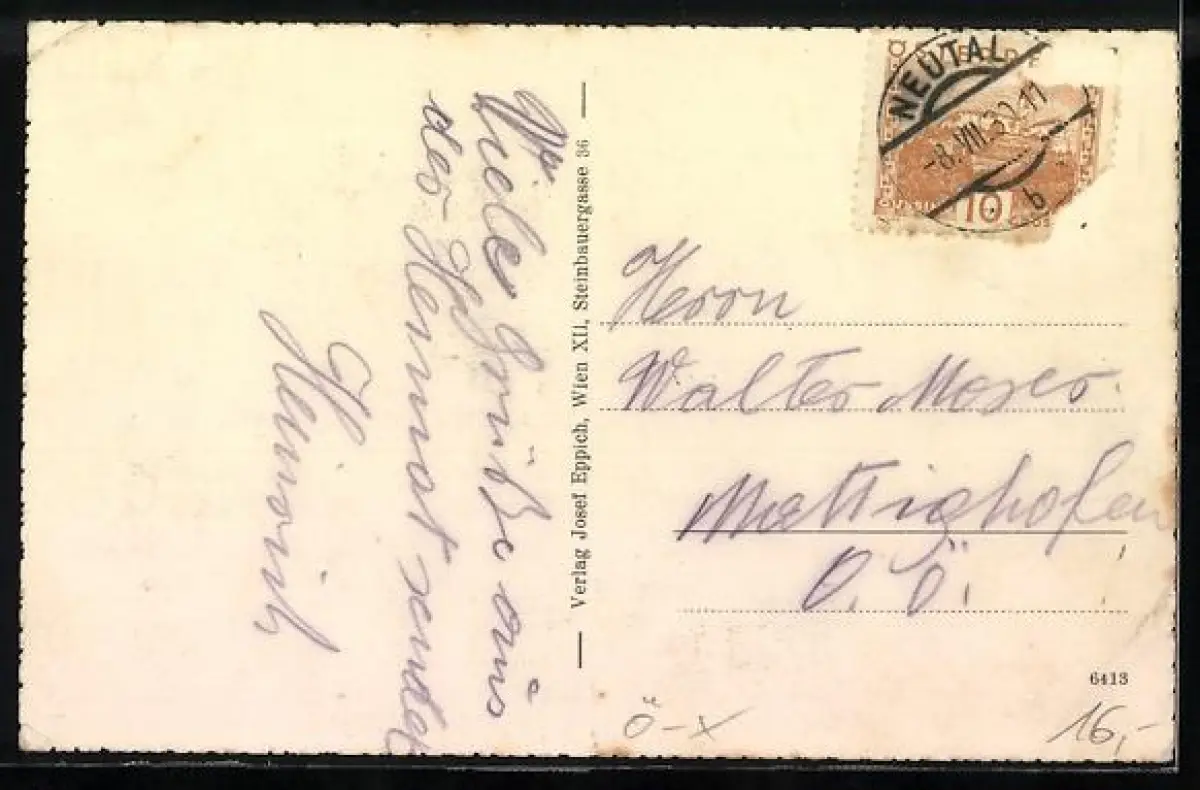 Viele Grüße aus
der Heimat sendet
Heinrich
Verlag Josef Eppich, Wien XII, Steinbauergasse 36
NEUTAL
-8.VIII.30.11
b
10
Herrn
Walter Moser
Mattighofen
O.Ö.
6413
Ö-X
16,-